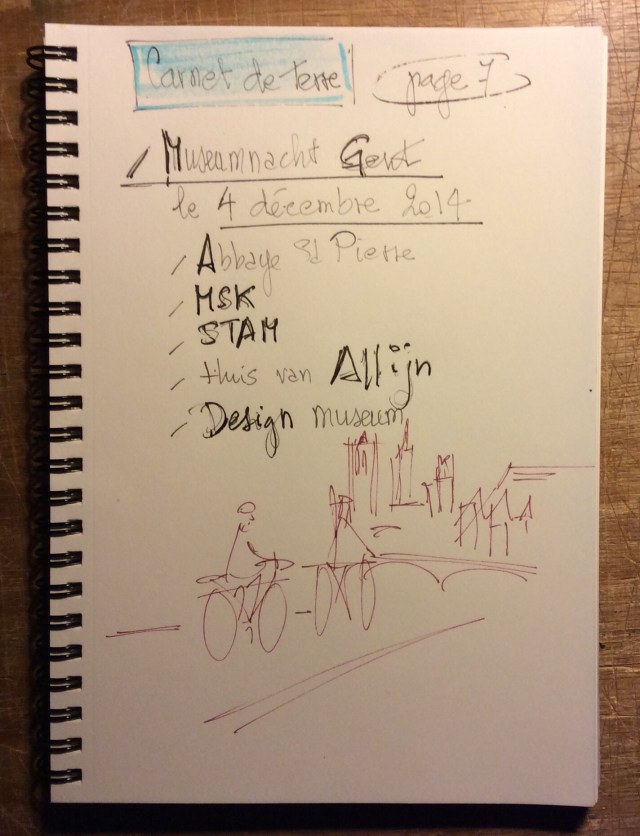 Carnet de terre page 7
Museumnacht Gent
le 4 décembre 2014
/ Abbaye St Pierre
/ MSK
/ STAM
/ Huis van Allijn
/ Design museum